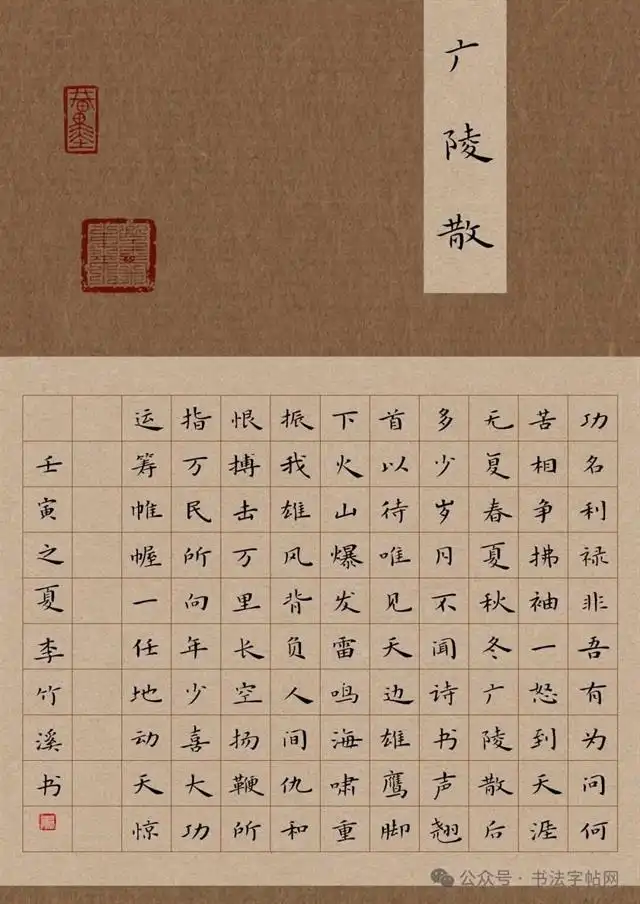 广陵散
功名利禄非吾有为问何
苦相争拂袖一怒到天涯
无夏春夏秋冬广陵散后
多少岁月不闻诗书声翘
首以待唯见天边雄鹰脚
下火山爆发雷鸣海啸重
振我雄风背负人间仇和
恨搏击万里长空扬鞭所
指万民所向年少喜大功
运筹帷幄一任地动天惊
壬寅之夏李竹溪书
公众号·书法字帖网